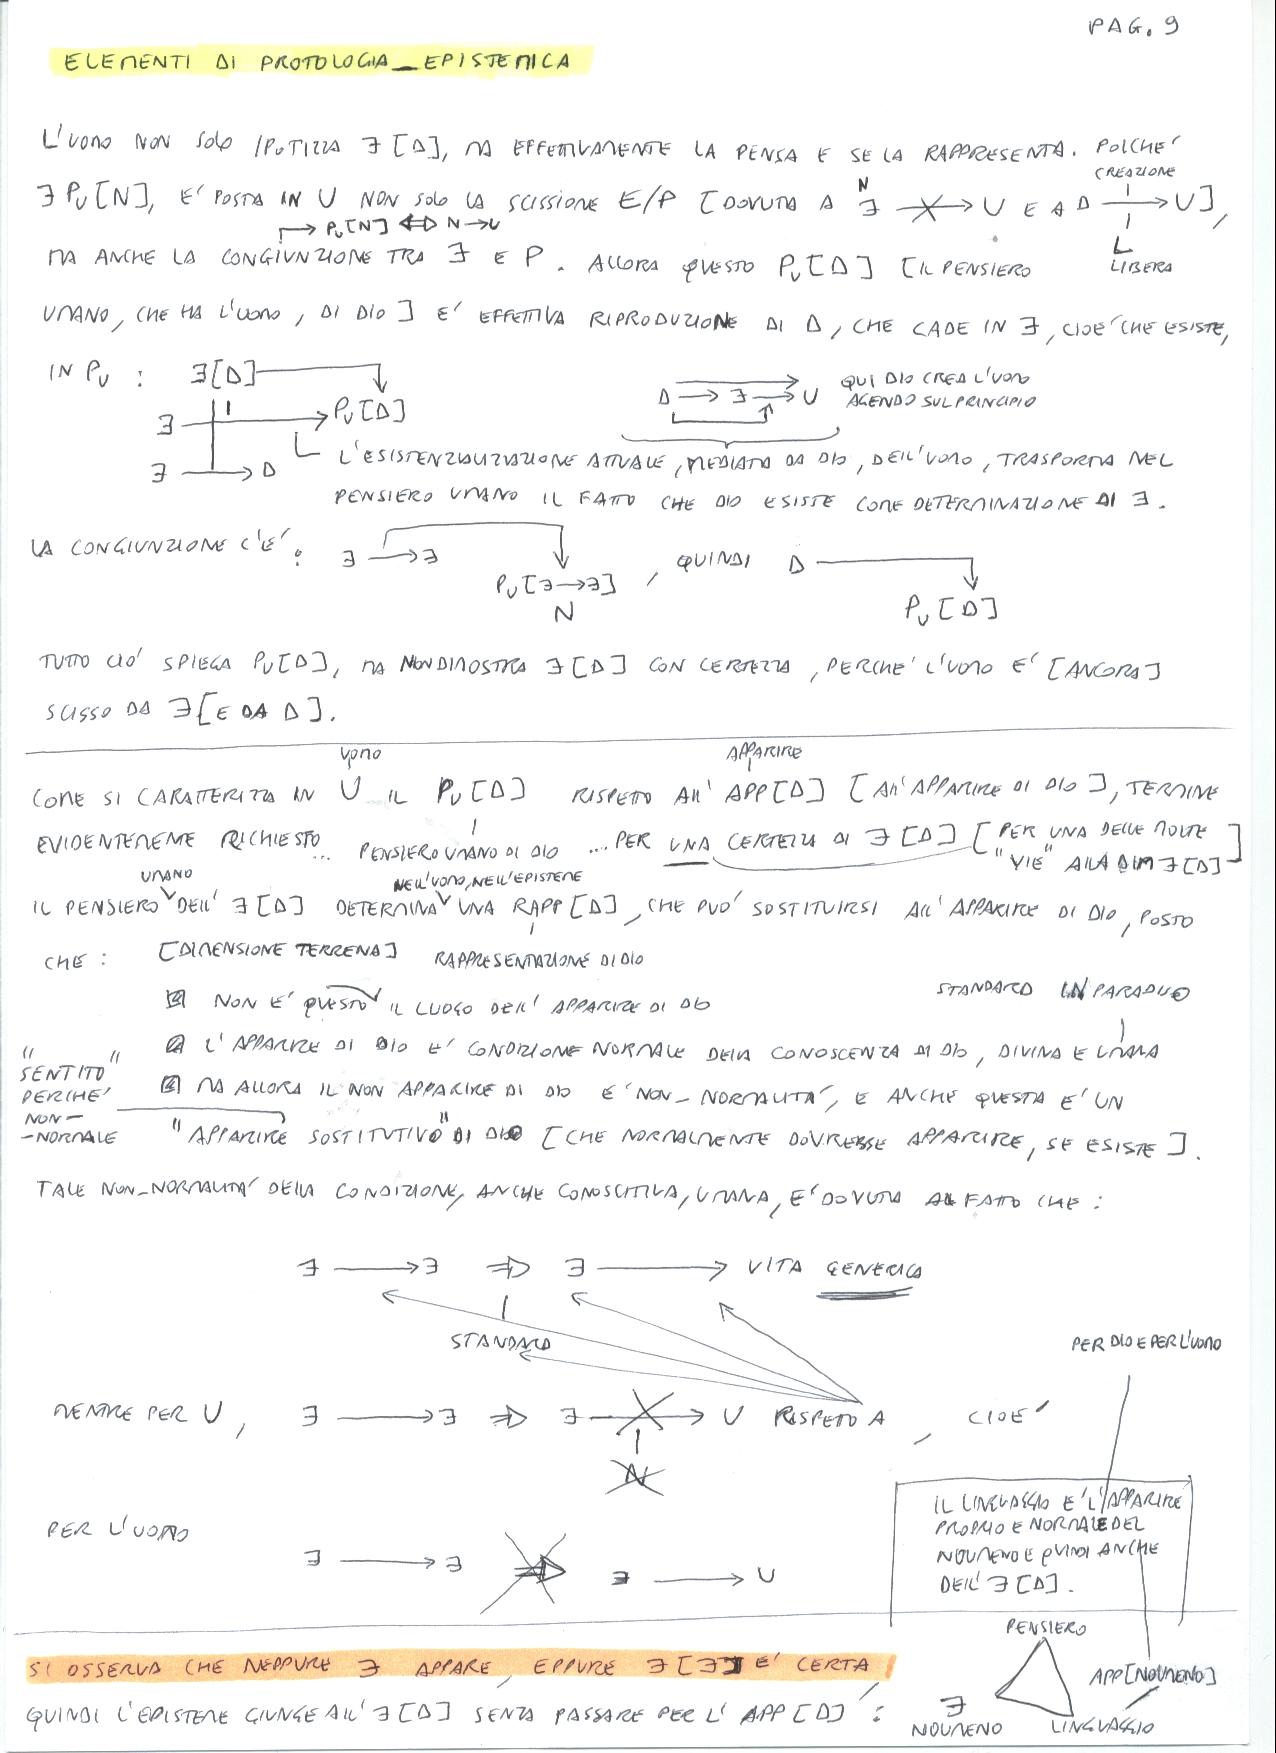 PAG. 9
ELEMENTI DI PROTOLOGIA_EPISTEMICA
L'UOMO NON SOLO IPOTIZZA ∃[Δ], MA EFFETTIVAMENTE LA PENSA E SE LA RAPPRESENTA. POICHE'
CREAZIONE
∃ PU[N], E' POSTA IN U NON SOLO LA SCISSIONE E/P [DOVUTA A ∃ → U E A Δ → U],
N
→ PU[N] ⇔ N→U
MA ANCHE LA CONGIUNZIONE TRA ∃ E P. ALLORA QUESTO PU[Δ] [IL PENSIERO
LIBERA
UMANO, CHE HA L'UOMO, DI DIO] E' EFFETTIVA RIPRODUZIONE DI Δ, CHE CADE IN ∃, CIOE' CHE ESISTE,
IN PU : ∃[Δ]
∃ → PU[Δ]
∃ → Δ
Δ → ∃ → U
QUI DIO CREA L'UOMO
AGENDO SUL PRINCIPIO
L'ESISTENZIALIZZAZIONE ATTUALE, MEDIATA DA DIO, DELL'UOMO, TRASPORTA NEL
PENSIERO UMANO IL FATTO CHE DIO ESISTE COME DETERMINAZIONE DI ∃.
LA CONGIUNZIONE C'E' : ∃ → ∃
PU[∃→∃]
N
, QUINDI Δ
PU[Δ]
TUTTO CIO' SPIEGA PU[Δ], MA NON DIMOSTRA ∃[Δ] CON CERTEZZA, PERCHE' L'UOMO E' [ANCORA]
SCISSO DA ∃[E DA Δ].
UOMO
APPARIRE
COME SI CARATTERIZZA IN U IL PU[Δ] RISPETTO ALL' APP[Δ] [ALL'APPARIRE DI DIO], TERMINE
EVIDENTEMENTE RICHIESTO ... PENSIERO UMANO DI DIO ... PER UNA CERTEZZA DI ∃[Δ] [PER UNA DELLE MOLTE
"VIE" ALLA DIM ∃[Δ]]
UMANO
NELL'UOMO, NELL'EPISTEME
IL PENSIERO DELL' ∃[Δ] DETERMINA UNA RAPP[Δ], CHE PUO' SOSTITUIRSI ALL'APPARIRE DI DIO, POSTO
CHE : [DIMENSIONE TERRENA] RAPPRESENTAZIONE DI DIO
NON E' QUESTO IL LUOGO DELL'APPARIRE DI DIO
STANDARD IN PARADISO
L'APPARIRE DI DIO E' CONDIZIONE NORMALE DELLA CONOSCENZA DI DIO, DIVINA E UMANA
MA ALLORA IL NON APPARIRE DI DIO E' NON_NORMALITA', E ANCHE QUESTA E' UN
"APPARIRE SOSTITUTIVO" DI DIO [CHE NORMALMENTE DOVREBBE APPARIRE, SE ESISTE].
"SENTITO"
PERCHE'
NON-
-NORMALE
TALE NON_NORMALITA' DELLA CONDIZIONE, ANCHE CONOSCITIVA, UMANA, E' DOVUTA AL FATTO CHE :
∃ → ∃ ⇒ ∃ → VITA GENERICA
STANDARD
PER DIO E PER L'UOMO
MENTRE PER U, ∃ → ∃ ⇒ ∃ → U RISPETTO A , CIOE'
N
PER L'UOMO
∃ → ∃ ⇒ ∃ → U
IL LINGUAGGIO E' L'APPARIRE
PROPRIO E NORMALE DEL
NOUMENO E QUINDI ANCHE
DELL' ∃[Δ].
PENSIERO
APP[NOUMENO]
∃
NOUMENO
LINGUAGGIO
SI OSSERVA CHE NEPPURE ∃ APPARE, EPPURE ∃[∃] E' CERTA
QUINDI L'EPISTEME GIUNGE ALL'∃[Δ] SENZA PASSARE PER L'APP[Δ] :